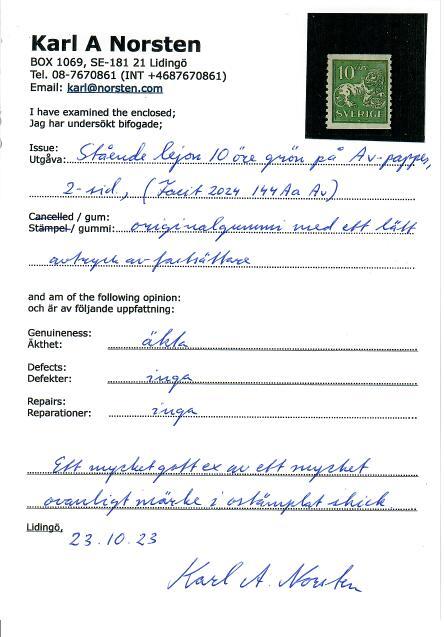 Karl A Norsten
BOX 1069, SE-181 21 Lidingö
Tel. 08-7670861 (INT +4687670861)
Email: karl@norsten.com
10 ÖRE
SVERIGE
I have examined the enclosed;
Jag har undersökt bifogade;
Issue:
Utgåva: Stående lejon 10 öre grön på Av-papper,
2-sid, (Facit 2024 144Aa Av)
Cancelled / gum:
Stämpel / gummi: originalgummi med ett lätt
avtryck av fastsättare
and am of the following opinion:
och är av följande uppfattning:
Genuineness:
Äkthet: äkta
Defects:
Defekter: inga
Repairs:
Reparationer: inga
Ett mycket gott ex av ett mycket
ovanligt märke i ostämplat skick
Lidingö,
23.10.23
Karl A. Norsten